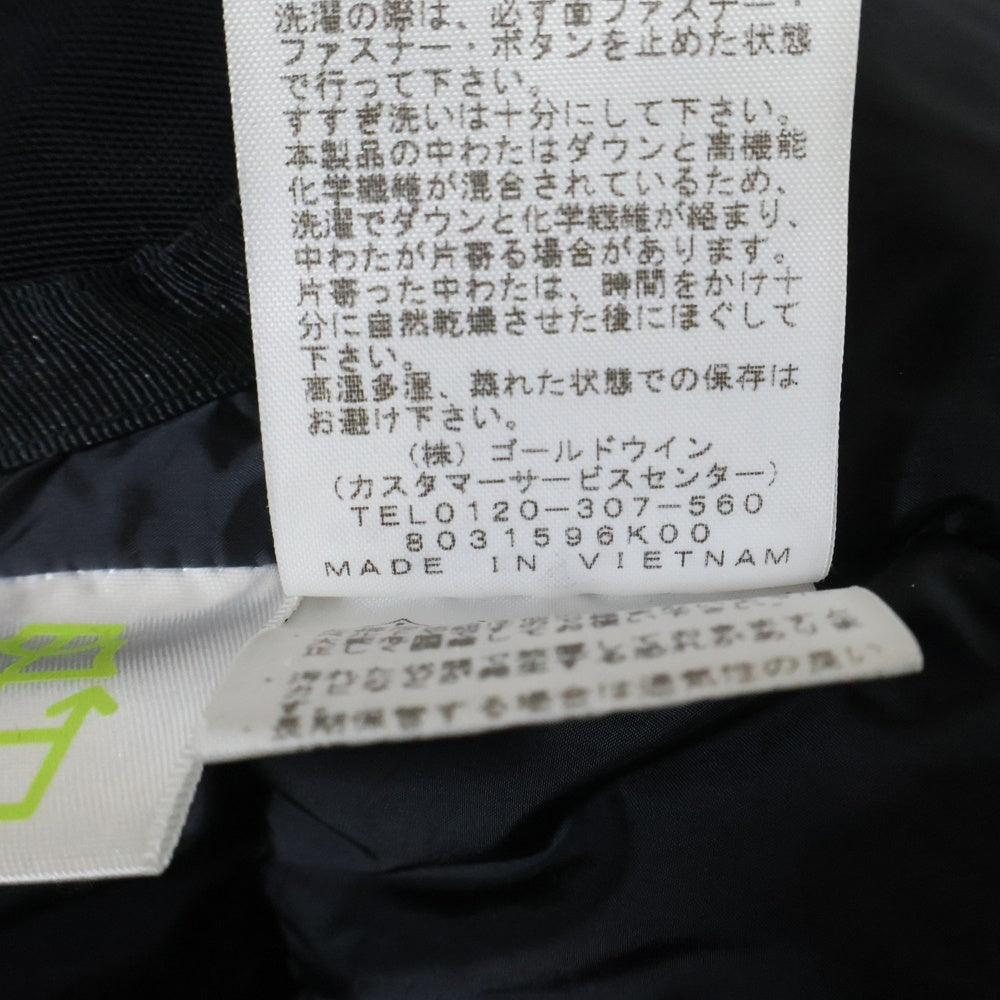 洗濯の際は、必ず面ファスナー・
ファスナー・ボタンを止めた状態
で行って下さい。
すすぎ洗いは十分にして下さい。
本製品の中わたはダウンと高機能
化学繊維が混合されているため、
洗濯でダウンと化学繊維が絡まり、
中わたが片寄る場合があります。
片寄った中わたは、時間をかけ十
分に自然乾燥させた後にほぐして
下さい。
高温多湿、蒸れた状態での保存は
お避け下さい。
(株) ゴールドウイン
(カスタマーサービスセンター)
TEL0120-307-560
8031596K00
MADE IN VIETNAM
する場合は通気性の良い